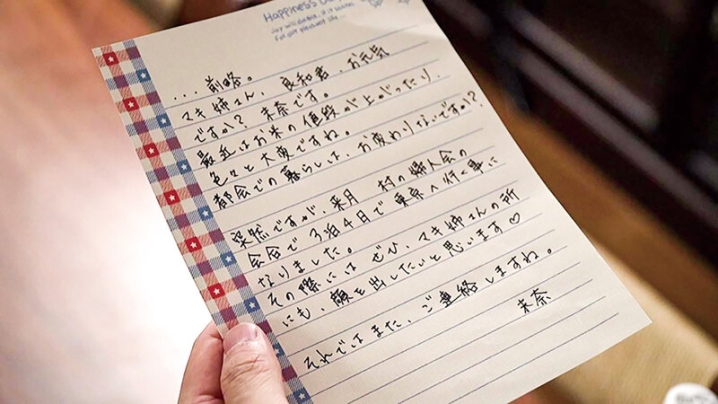 Happiness
Joy will
For our pleasant life...
...前略。
マキ姉さん、良和君、お元気
ですか？ 未奈です。
最近はお米の値段が上がったり、
色々と大変ですね。
都会での暮らしは、お変わりないですか？
突然ですが、来月、村の婦人会の
会合で3泊4日で東京へ行く事に
なりました。
その際にはぜひ、マキ姉さんの所
にも、顔を出したいと思います♡
それではまた、ご連絡しますね。
未奈